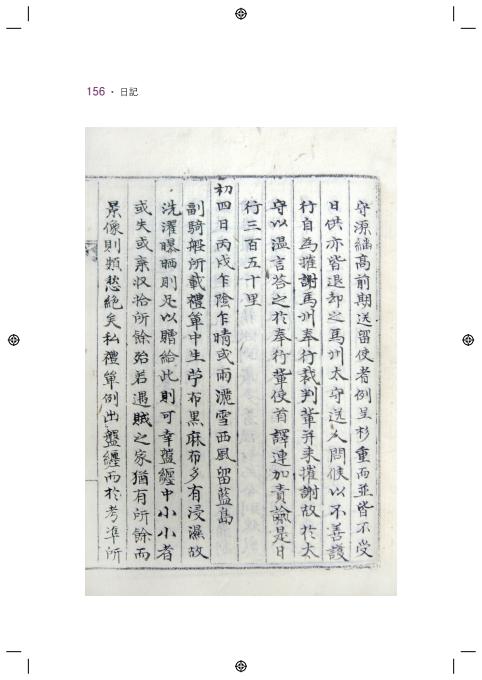 156 · 日記
守源繙高前期送留使者例呈杉重而並皆不受
日供亦皆退却之馬州太守送人問候以不善護
行自為摧謝馬州奉行裁判輩並來摧謝故於太
守以溫言答之於奉行輩使首譯連加責諭是日
行三百五十里
初四日丙戌乍陰乍晴或雨灑雪西風留藍島
副騎船所載禮單中生苧布黑麻布多有浸濕故
洗濯曝晒則足以贈給此則可幸盤纏中小小者
或失或棄收拾所餘殆若遇賊之家猶有所餘而
景像則類愁絕矣私禮單例出盤纏而於考準所